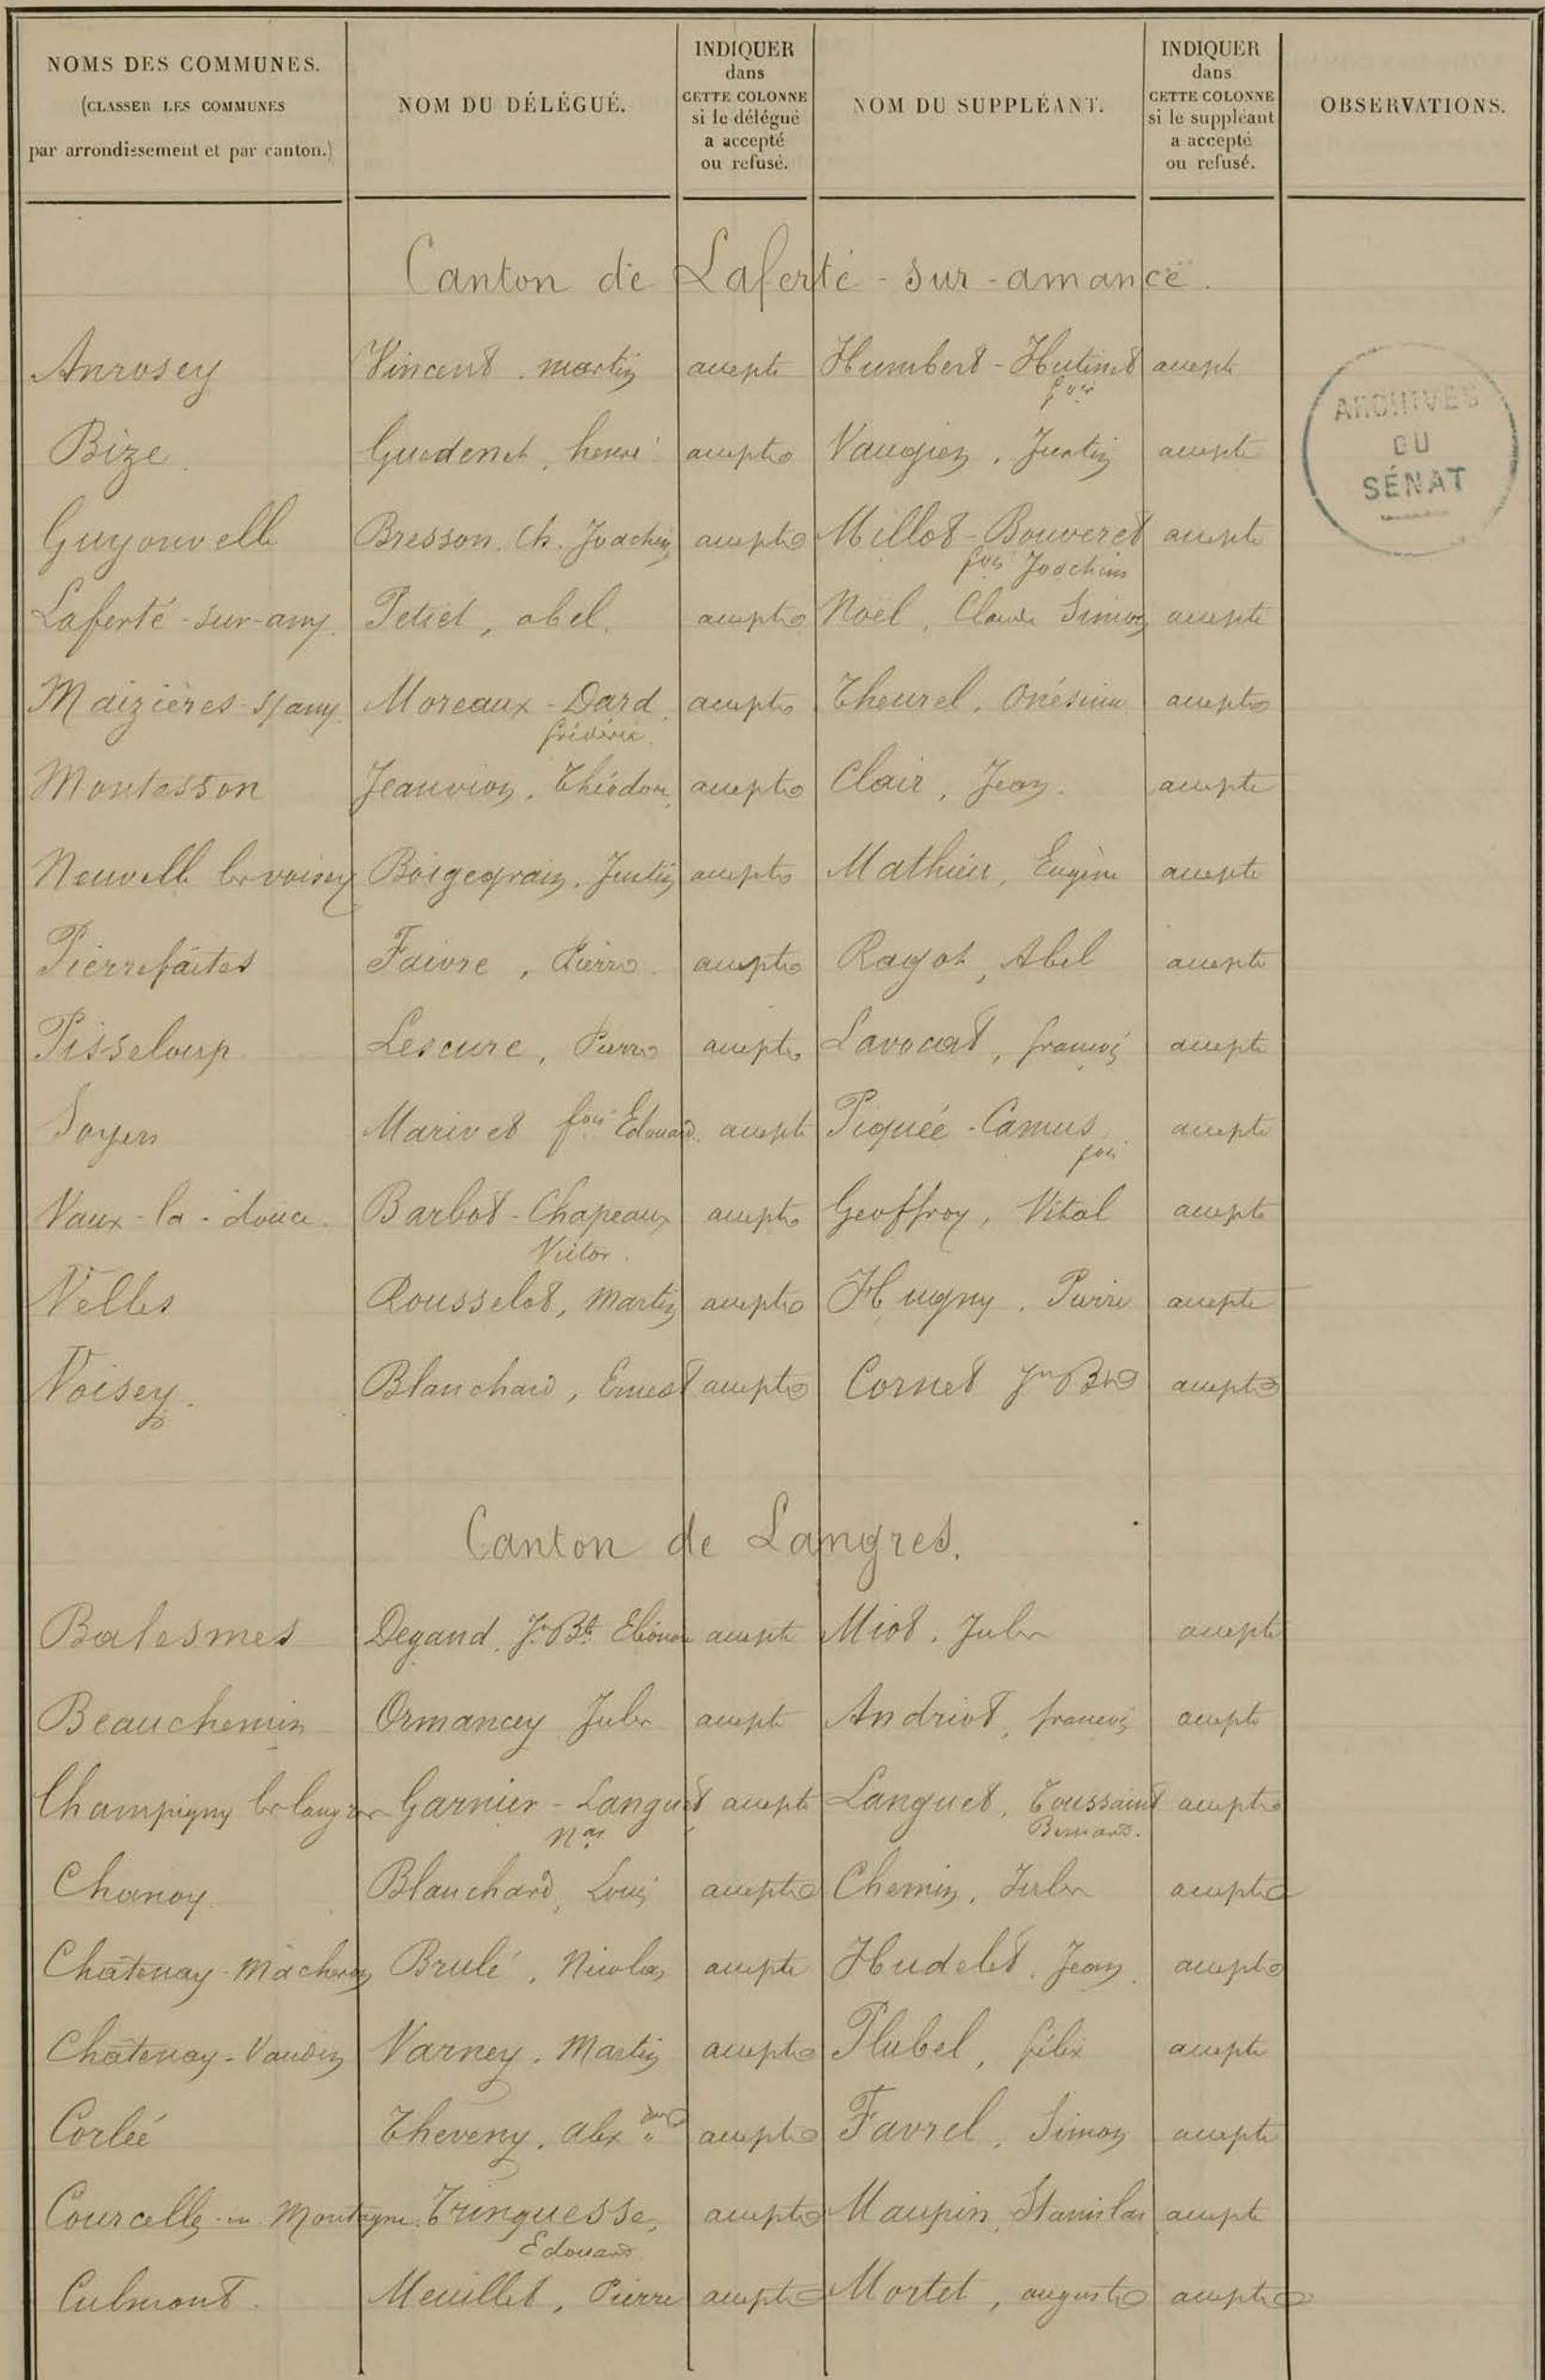 NOMS DES COMMUNES.
(CLASSER LES COMMUNES
par arrondissement et par canton.)
NOM DU DÉLÉGUÉ.
INDIQUER
dans
CETTE COLONNE
si le délégué
a accepté
ou refusé.
NOM DU SUPPLÉANT.
INDIQUER
dans
CETTE COLONNE
si le suppléant
a accepté
ou refusé.
OBSERVATIONS.
Canton de Laferté-sur-amance.
ARCHIVES
DU
SÉNAT
Anrosey Vincent. martin accepte Humbert-Hutinet accepte
fois
Bize Guedenet, henri accepte Vaugien, Justin accepte
Guyonvelle Bresson. Ch. Joachim accepte Millot-Bouveret accepte
fois Joachim
Laferté-sur-am. Petiet, abel. accepte Noël, Claude Simon accepte
Maizières-s/am. Moreaux-Dard, accepte Theurel, Onésime accepte
frédéric.
Montesson Jeanvion, Théodore, accepte Clair, Jean. accepte
Neuvelle les voisey Boisgegrain, Justin accepte Mathieu, Eugène accepte
Pierrefaites Faivre, Pierre. accepte Ragot, Abel accepte
Pisseloup Lescure, Pierre accepte Lavocat, françois accepte
Soyers Marivet fois Edouard. accepte Piquée-Camus accepte
fois
Vaux-la-douce. Barbot-Chapeaux accepte Geoffroy, Vital accepte
Victor.
Velles Rousselot, Martin accepte Hugny. Pierre accepte
Voisey. Blanchard, Ernest accepte Cornet Jn Bte accepte
Canton de Langres.
Balesmes Degand, Jn Bte Eléonore accepte Miot. Jules accepte
Beauchemin Ormancey Jules accepte Andriot, françois accepte
Champigny les langres Garnier-Languet accepte Languet, Toussaint accepte
Nas Bernard.
Chanoy Blanchard, Louis accepte Chemin, Jules accepte
Chatenay-Mâcheron Brulé, Nicolas accepte Hudelet, Jean. accepte
Châtenay-Vaudin Varney. Martin accepte Plubel, félix accepte
Corlée Theveny. alexdre accepte Favrel, Simon accepte
Courcelles-en Montagne Tringuesse, accepte Maupin, Stanislas accepte
Edouard
Culmont. Meuillet, Pierre accepte Mortet, auguste accepte